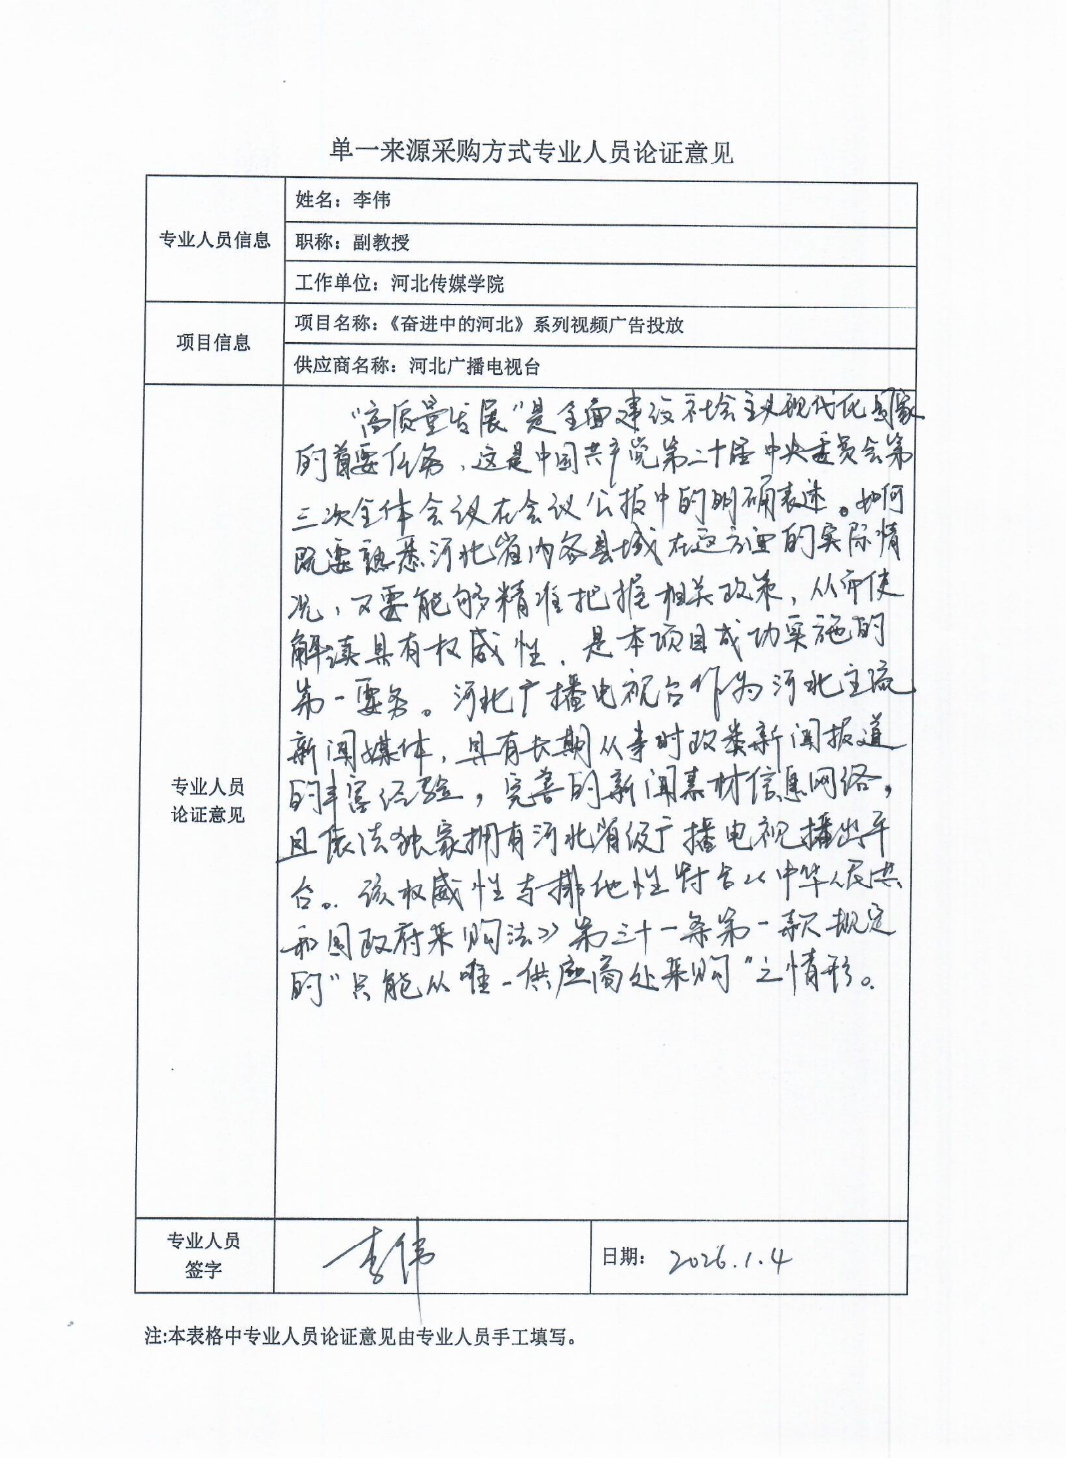 单一来源采购方式专业人员论证意见
专业人员信息
姓名：李伟
职称：副教授
工作单位：河北传媒学院
项目信息
项目名称：《奋进中的河北》系列视频广告投放
供应商名称：河北广播电视台
专业人员
论证意见
“高质量发展”是全面建设社会主义现代化国家
的首要任务，这是中国共产党第二十届中央委员会第
三次全体会议在会议公报中的明确表述。如何
既要熟悉河北省内各县域在这方面的实际情
况，又要能够精准把握相关政策，从而使
解读具有权威性，是本项目成功实施的
第一要务。河北广播电视台作为河北主流
新闻媒体，具有长期从事时政类新闻报道
的丰富经验，完善的新闻素材信息网络，
且依法独家拥有河北省级广播电视播出平
台。该权威性与排他性符合《中华人民共
和国政府采购法》第三十一条第一款规定
的“只能从唯一供应商处采购”之情形。
专业人员
签字
李伟
日期：2026.1.4
注:本表格中专业人员论证意见由专业人员手工填写。